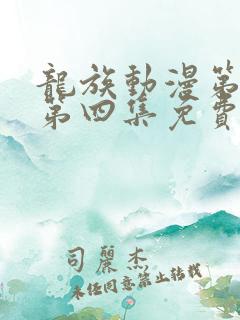 龍族動漫第
第四集免費
司麗杰
未任同意禁止转載